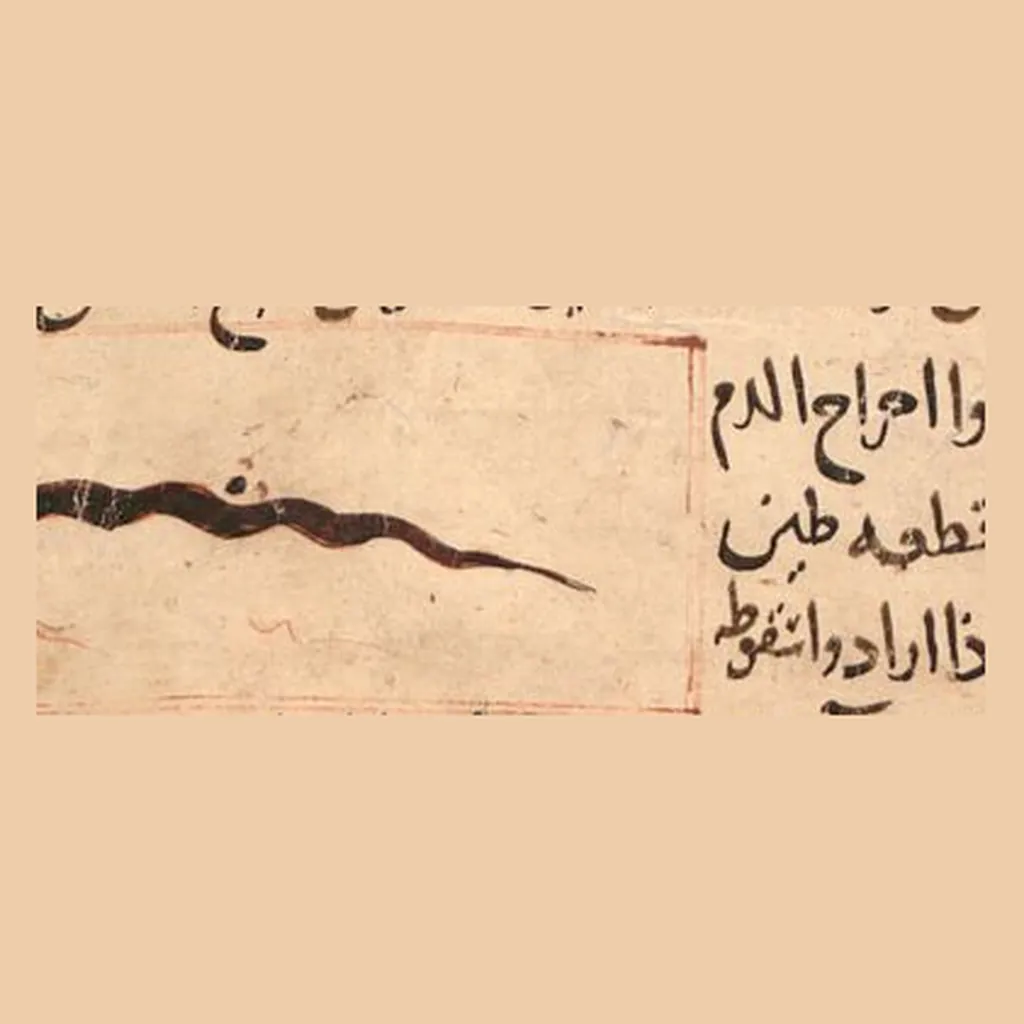 وا اخراج الدم
قطعه طين
ذا ارادوا سقوطه